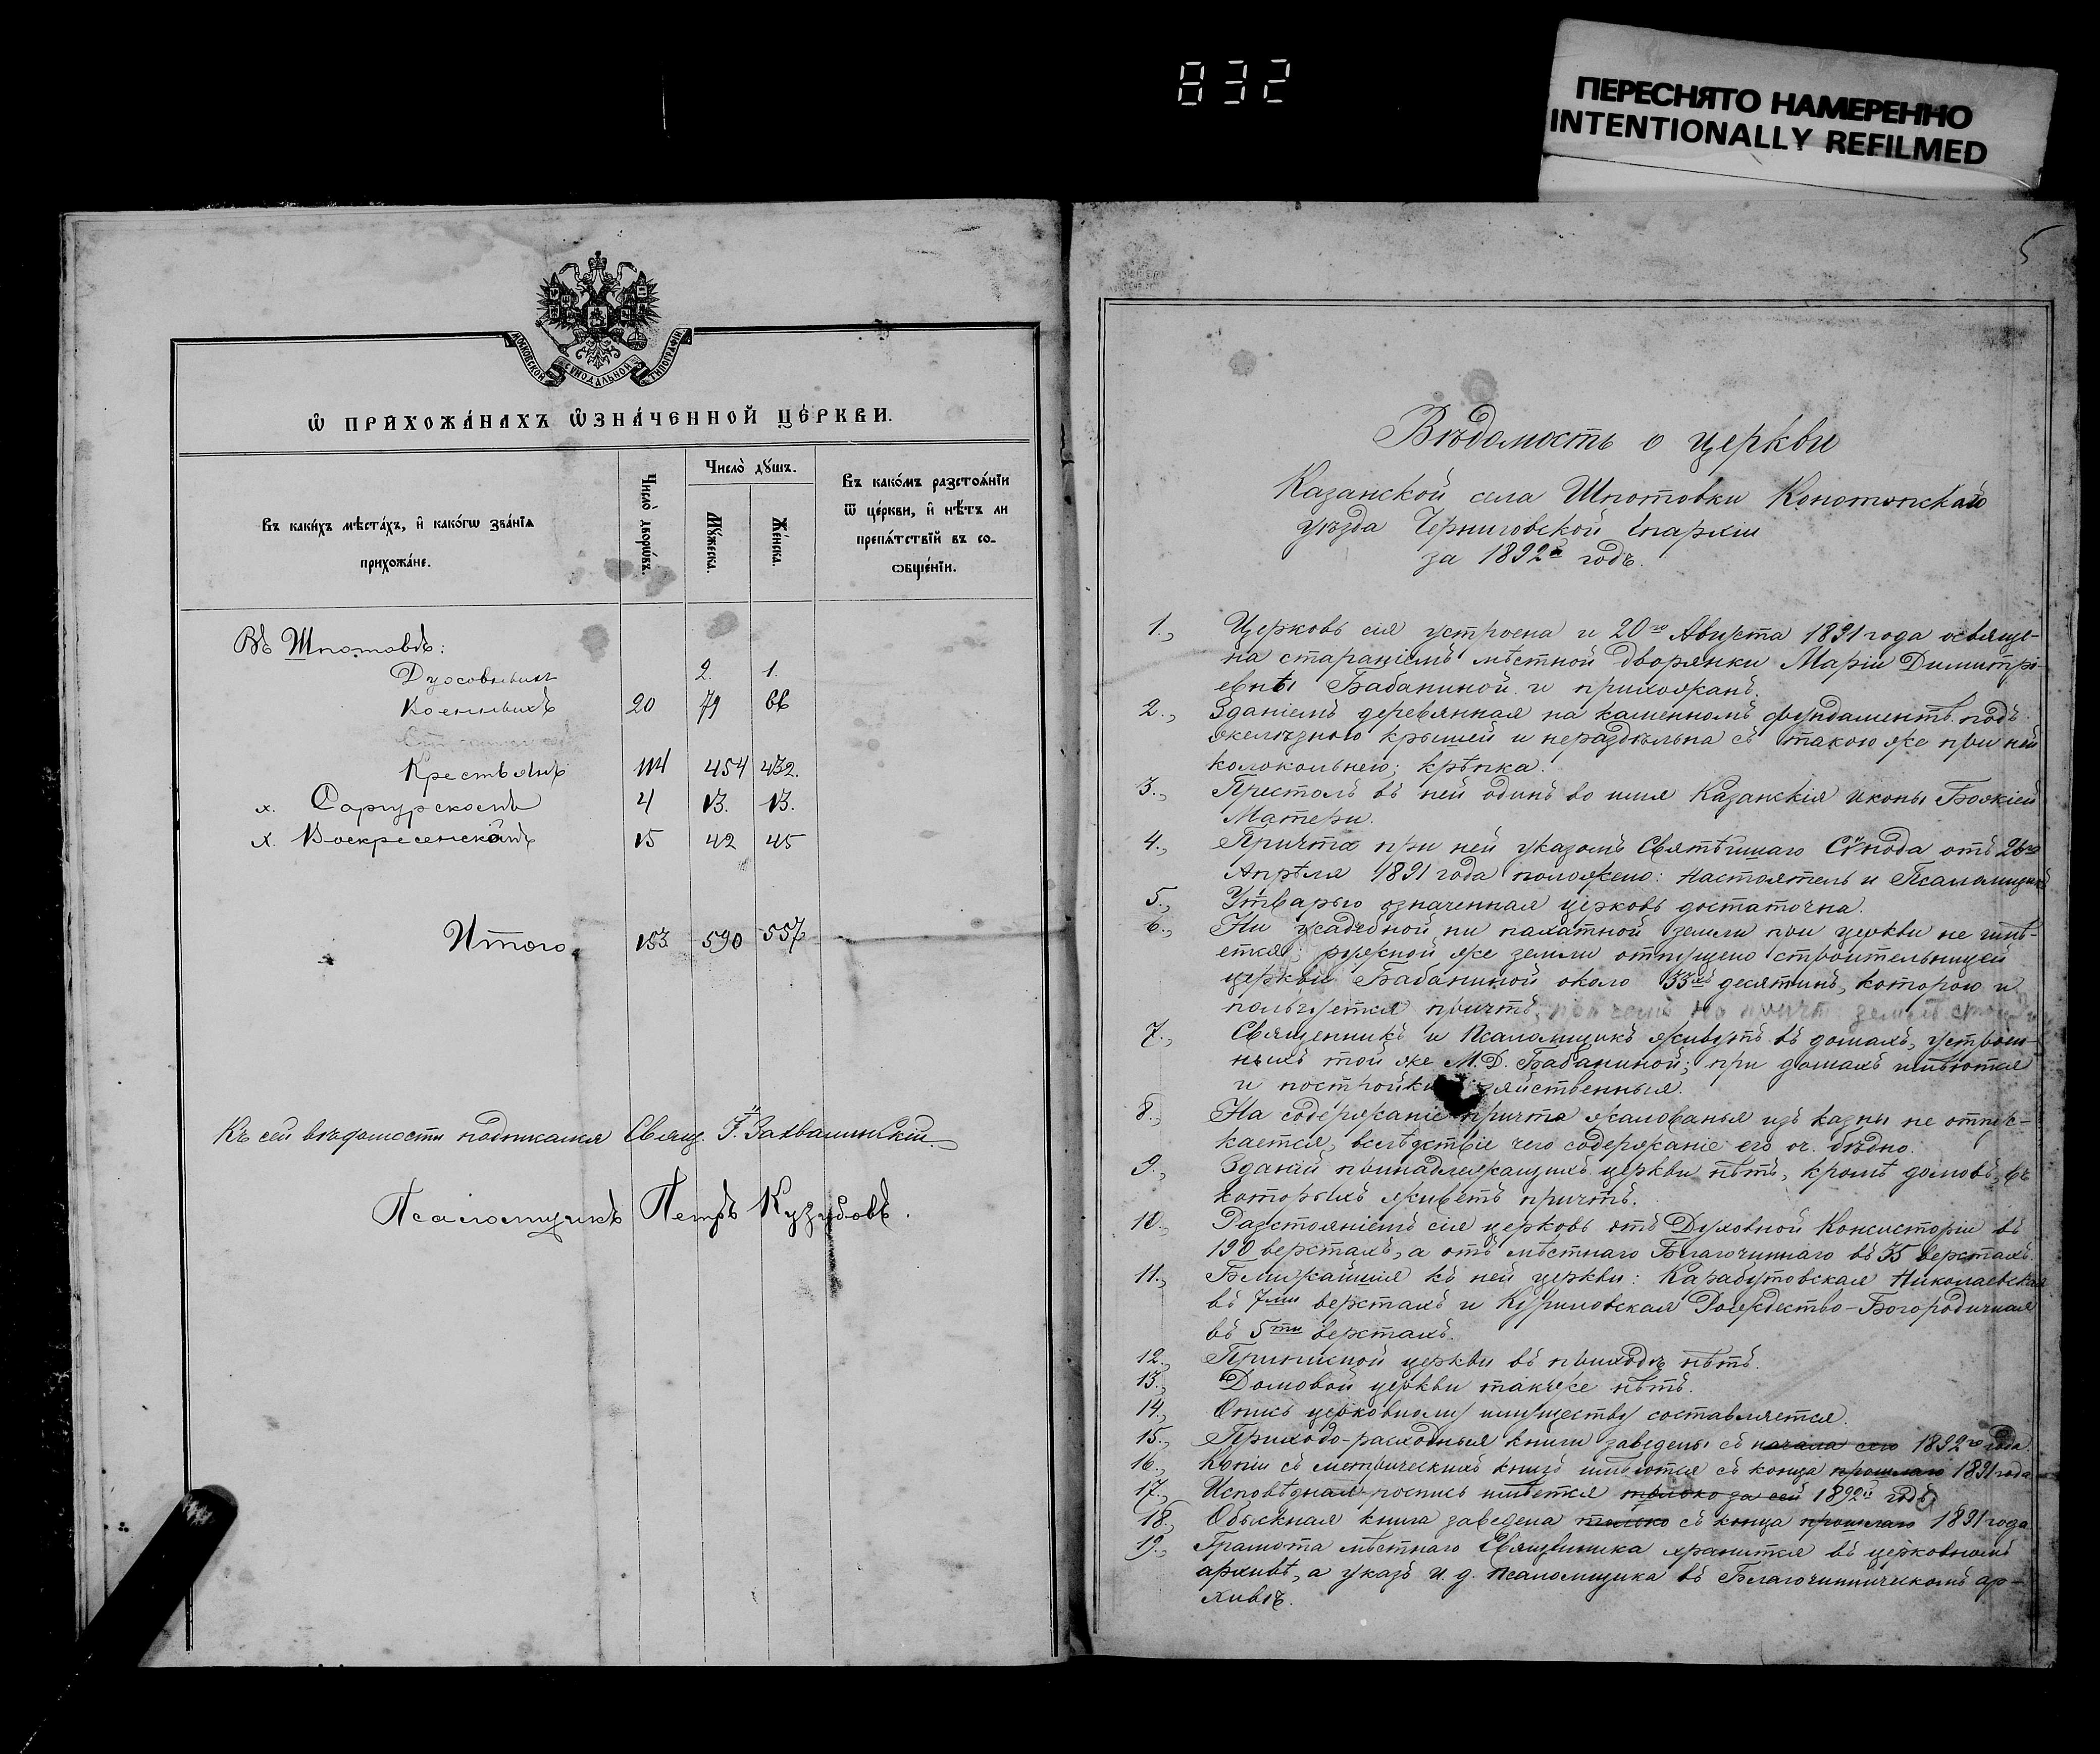 832
ПЕРЕСНЯТО НАМЕРЕННО
INTENTIONALLY REFILMED
МОСКОВСКОЙ СѴНОДАЛЬНОЙ ТИПОГРАФІИ
Ѽ ПРИХОЖА́НАХЪ Ѡ҆ЗНА́ЧЕННОЙ ЦЕ́РКВИ.
Въ каки́хъ мѣста́хъ, и҆ како́гѡ зва́нїѧ
прихожа́не.
Число̀ дворѡ́въ.
Число̀ дꙋ́шъ.
Мꙋ́жеска.
Же́нска.
Въ како́мъ разстоѧ́нїи
ѿ це́ркви, и҆ нѣ́тъ ли
препѧ́тствїй въ со-
ѡбще́нїи.
Въ Шпотовкѣ:
Духовныхъ 2. 1.
Военныхъ 20 79 66
Крестьянъ 114 454 432.
х. Сапурскомъ 4 13. 13.
х. Воскресенскомъ 15 42 45
Итого 153 590 557
Къ сей вѣдомости подписался Свящ. Г. Захвалинскій.
Псаломщикъ Петръ Кузубовъ.
5
Вѣдомость о церкви
Казанской села Шпотовки Конотопскаго
уѣзда Черниговской Епархіи
за 1892й годъ.
1., Церковь сія устроена и 20го Августа 1891 года освяще-
на стараніемъ мѣстной дворянки Маріи Димитрі-
евны Бабаниной и прихожанъ.
2., Зданіемъ деревянная на каменномъ фундаментѣ подъ
желѣзною крышей и нераздѣльна съ такою же при ней
колокольнею; крѣпка.
3., Престолъ въ ней одинъ во имя Казанскія иконы Божіей
Матери.
4., Причта при ней указомъ Святѣйшаго Сѵнода отъ 26го
Апрѣля 1891 года положено: Настоятель и Псаломщикъ
5., Утварью означенная церковь достаточна.
6., Ни усадебной ни пахатной земли при церкви не имѣ-
ется; ружной же земли отпущено строительницей
церкви Бабаниной около 33хъ десятинъ, которою и
пользуется причтъ,
7., Священникъ и Псаломщикъ живутъ въ домахъ, устроен-
ныхъ той же М. Д. Бабаниной; при домахъ имѣются
и постройки зяйственныя.
8., На содержаніе причта жалованья изъ казны не отпус-
кается, вслѣдствіе чего содержаніе его оч. бѣдно.
9., Зданій принадлежащихъ церкви нѣтъ, кромѣ домовъ, въ
которыхъ живетъ причтъ.
10., Разстояніемъ сія церковь отъ Духовной Консисторіи въ
190 верстахъ, а отъ мѣстнаго Благочиннаго въ 35 верстахъ.
11., Ближайшія къ ней церкви: Карабутовская Николаевская
въ 7ми верстахъ и Куриловская Рождество-Богородичная
въ 5ти верстахъ.
12., Приписной церкви въ приходѣ нѣтъ.
13., Домовой церкви также нѣтъ.
14., Опись церковному имуществу составляется.
15., Приходо-расходныя книги заведены съ начала сего 1892го года.
16., Копіи съ метрическихъ книгъ имѣются съ конца прошлаго 1891 года
17., Исповѣдная роспись имѣется только за сей 1892й годъ
18., Обыскная книга заведена только съ конца прошлаго 1891 года
19., Грамота мѣстнаго Священника хранится въ церковномъ
архивѣ, а указъ и. д. псаломщика въ Благочинническомъ ар-
хивѣ.